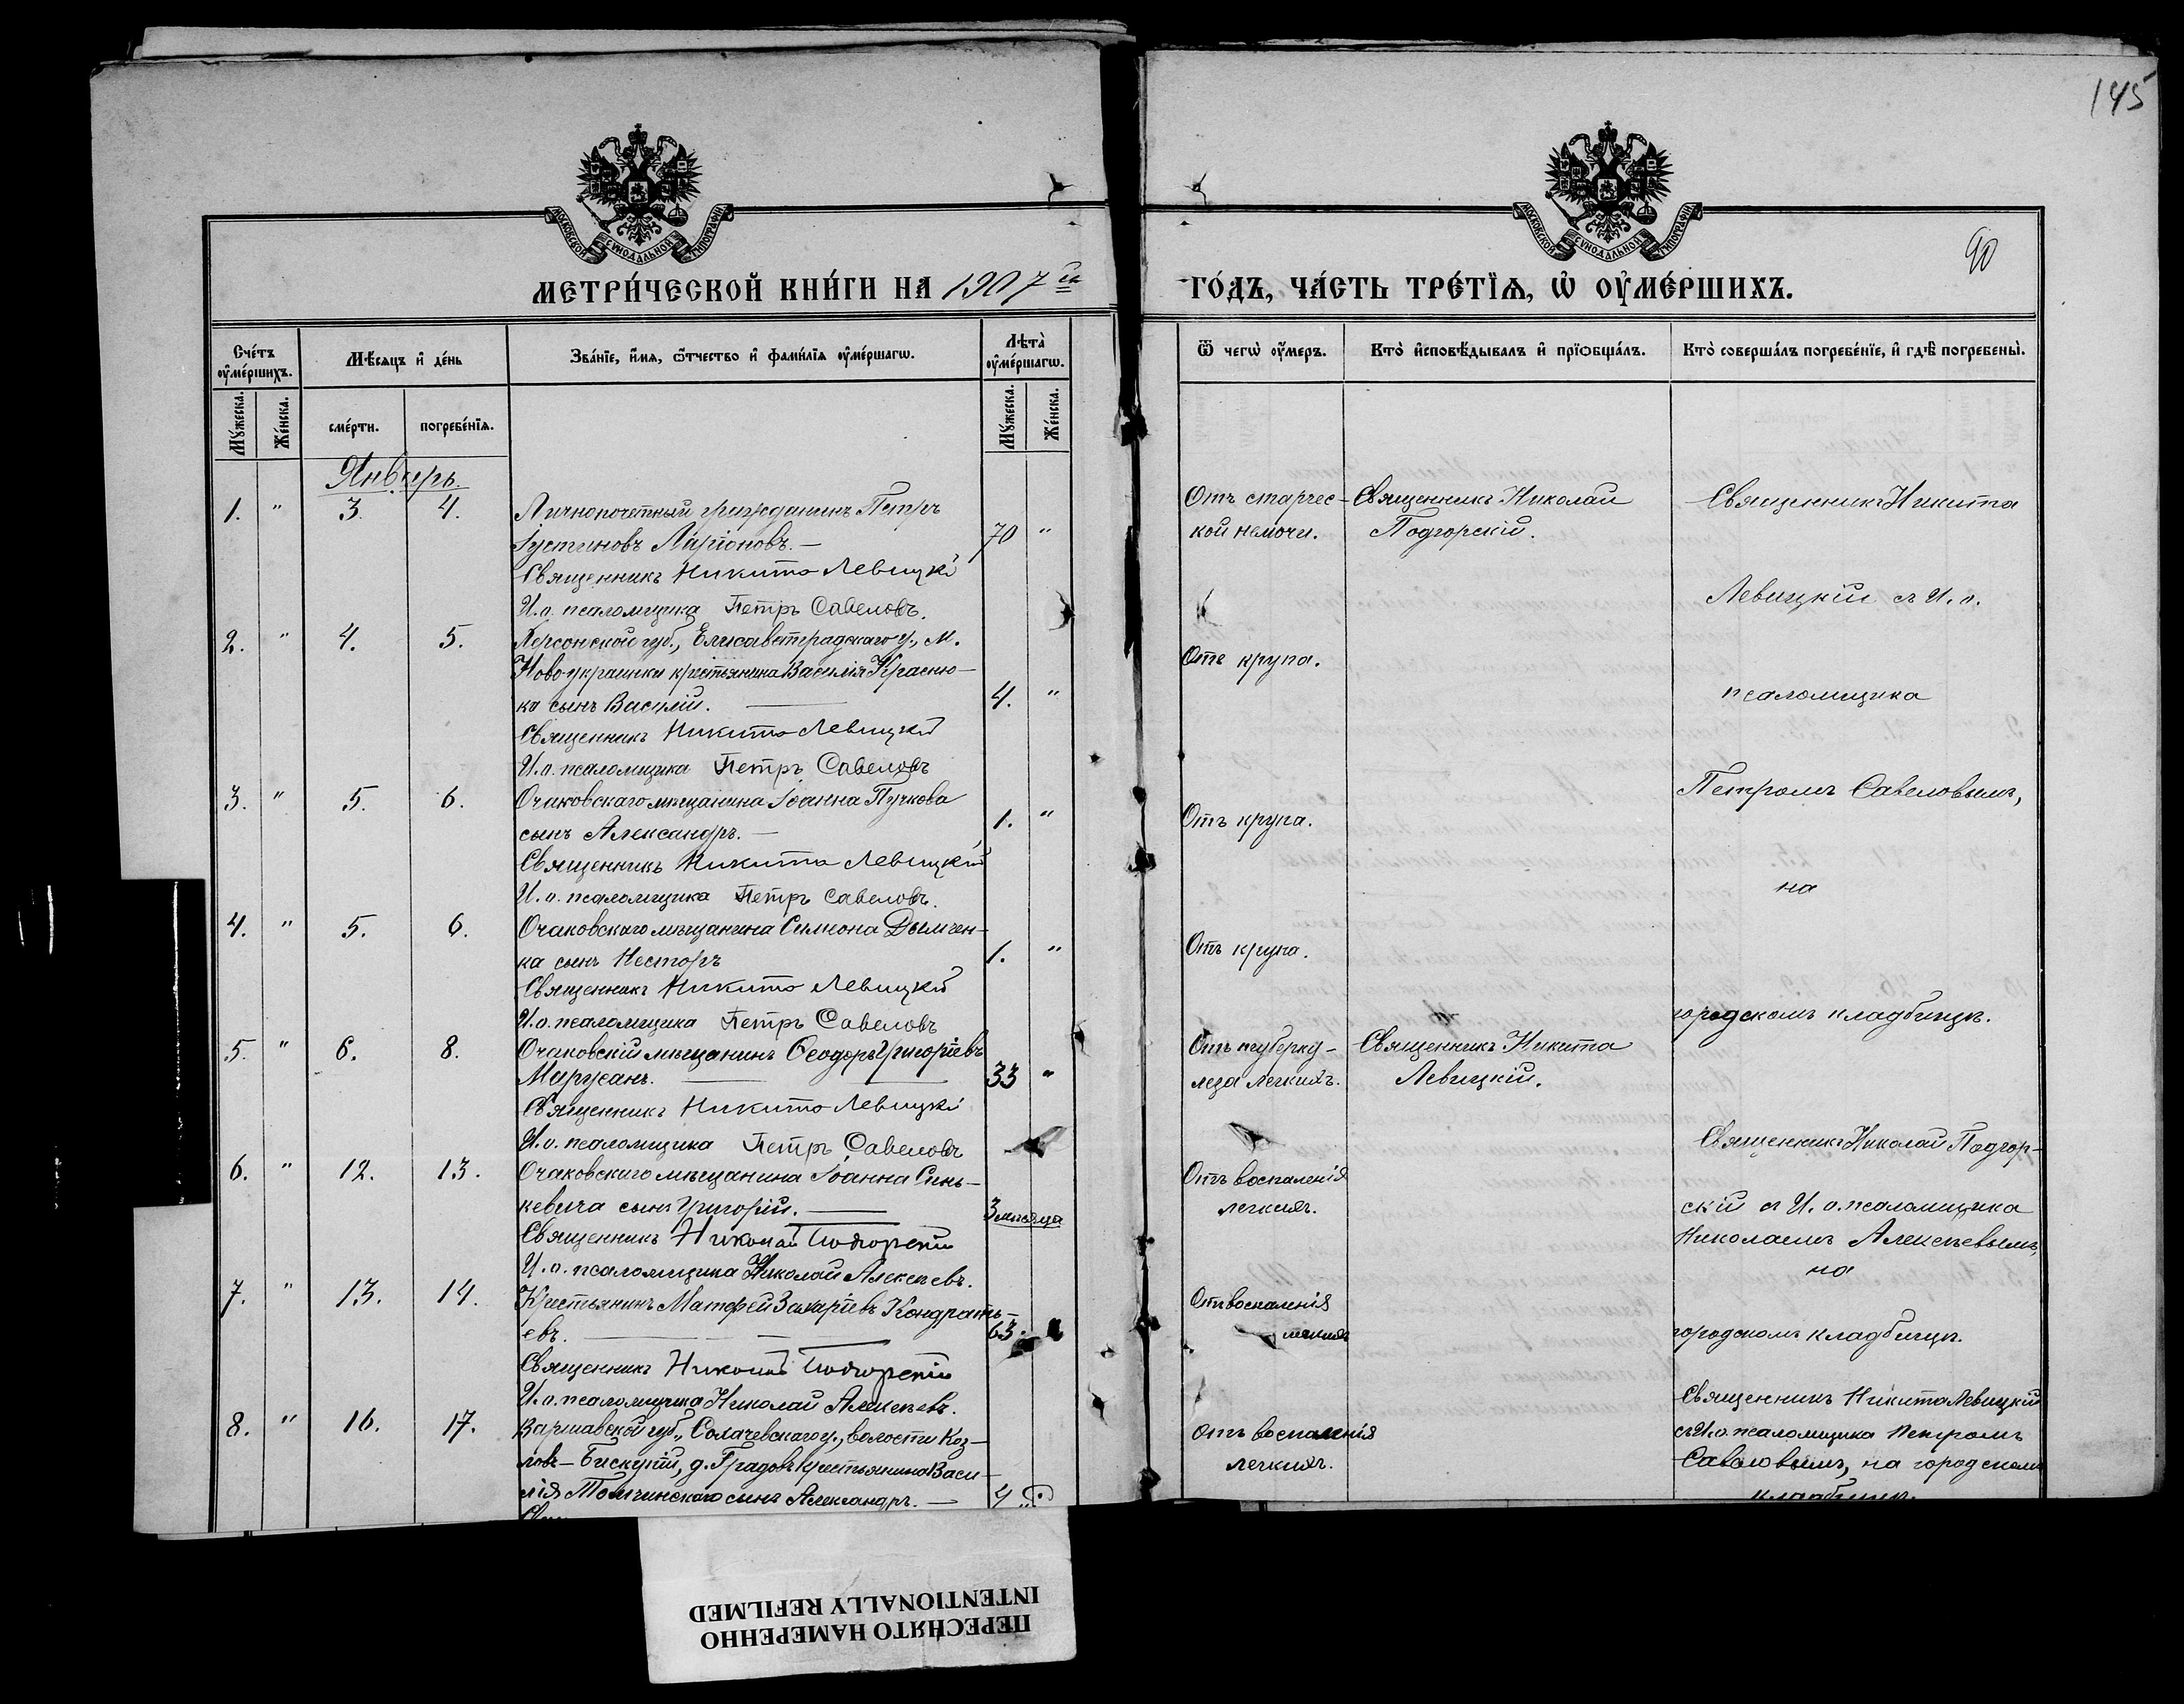 145
МОСКОВСКОЙ СУНОДАЛЬНОЙ ТИПОГРАФІИ
МОСКОВСКОЙ СУНОДАЛЬНОЙ ТИПОГРАФІИ
90
МЕТРИ́ЧЕСКОЙ КНИ́ГИ НА 1907й
ГО́ДЪ, ЧА́СТЬ ТРЕ́ТЇѦ, Ѡ҆ ОУ҆МЕ́РШИХЪ.
Сче́тъ оу҆ме́ршихъ.
Мѣ́сяцъ и҆ де́нь
Зва́нїе, и҆́мя, ѻ҆́тчество и҆ фами́лїя оу҆ме́ршагѡ.
Лѣта̀ оу҆ме́ршагѡ.
Ѿ чегѡ̀ оу҆́меръ.
Кто̀ и҆сповѣ́дывалъ и҆ прїѻбща́лъ.
Кто̀ соверша́лъ погребе́нїе, и҆ гдѣ̀ погребены̀.
Му́жеска.
Же́нска.
сме́рти.
погребе́нїя.
Му́жеска.
Же́нска.
Январь.
1. " 3. 4. Личнопочетный гражданинъ Петръ
Іустиновъ Ларіоновъ. — 70 "
Священникъ Никита Левицкій
И. о. псаломщика Петръ Савеловъ.
2. " 4. 5. Херсонской губ., Елисаветградскаго у., м.
Новоукраинки крестьянина Василія Красню-
ка сынъ Василій. — 4. "
Священникъ Никита Левицкій
И. о. псаломщика Петръ Савеловъ
3. " 5. 6. Очаковскаго мѣщанина Іоанна Пучкова
сынъ Александръ. — 1. "
Священникъ Никита Левицкій
И. о. псаломщика Петръ Савеловъ.
4. " 5. 6. Очаковскаго мѣщанина Симеона Дымчен-
ка сынъ Несторъ 1. "
Священникъ Никита Левицкій
И. о. псаломщика Петръ Савеловъ
5. " 6. 8. Очаковскій мѣщанинъ Ѳеодоръ Григоріевъ
Маружанъ. — 33 "
Священникъ Никита Левицкій
И. о. псаломщика Петръ Савеловъ
6. " 12. 13. Очаковскаго мѣщанина Іоанна Синь-
кевича сынъ Григорій. — 3 мѣсяца
Священникъ Николай Подгорскій
И. о. псаломщика Николай Алексѣевъ.
7. " 13. 14. Крестьянинъ Матфей Захаріевъ Кондрать-
евъ. — 63.
Священникъ Николай Подгорскій
И. о. псаломщика Николай Алексѣевъ.
8. " 16. 17. Варшавской губ., Сохачевскаго у., волости Коз-
ловъ-Бискупій, д. Градовъ крестьянина Васи-
лія Томчинскаго сынъ Александръ. — 4 "
Отъ старчес-
кой немочи.
Отъ крупа.
Отъ крупа.
Отъ крупа.
Отъ туберку-
леза легкихъ.
Отъ воспаленія
легкихъ.
Отъ воспаленія
легкихъ
Отъ воспаленія
легкихъ.
Священникъ Николай
Подгорскій.
Священникъ Никита
Левицкій.
Священникъ Никита
Левицкій съ И. о.
псаломщика
Петромъ Савеловымъ,
на
городскомъ кладбищѣ.
Священникъ Николай Подгор-
скій съ И. о. псаломщика
Николаемъ Алексѣевымъ,
на
городскомъ кладбищѣ.
Священникъ Никита Левицкій
съ И. о. псаломщика Петромъ
Савеловымъ, на городскомъ
кладбищѣ.
ПЕРЕСНЯТО НАМЕРЕННО
INTENTIONALLY REFILMED